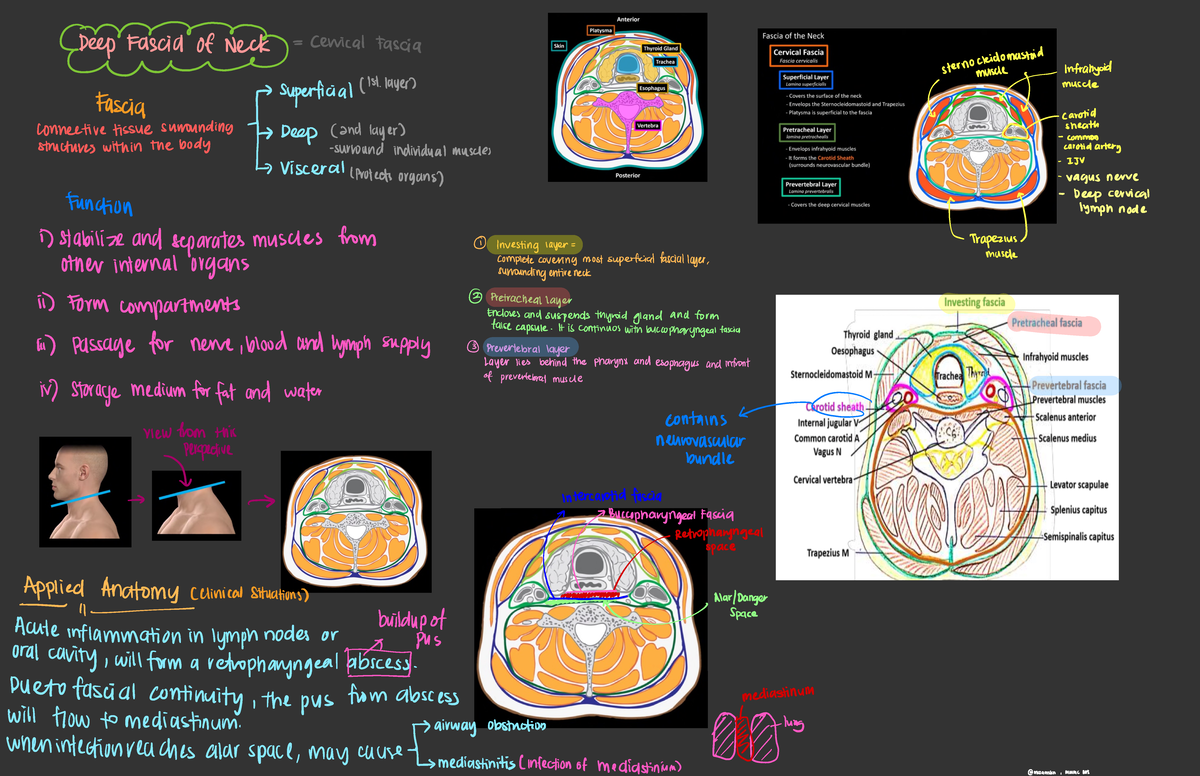 Deep Fascia of Neck = Cervical fascia
Fascia
Connective tissue surrounding
structures within the body
Superficial (1st layer)
Deep (2nd layer)
-surround individual muscles
Visceral (Protects organs)
Function
i) Stabilize and separates muscles from
other internal organs
ii) Form compartments
iii) Passage for nerve, blood and lymph supply
iv) Storage medium for fat and water
view from this
perspective
Anterior
Platysma
Skin
Thyroid Gland
Trachea
Esophagus
Vertebra
Posterior
Fascia of the Neck
Cervical Fascia
Fascia cervicalis
Superficial Layer
Lamina superficialis
- Covers the surface of the neck
- Envelops the Sternocleidomastoid and Trapezius
- Platysma is superficial to the fascia
Pretracheal Layer
lamina pretrachealis
- Envelops infrahyoid muscles
- It forms the Carotid Sheath
(surrounds neurovascular bundle)
Prevertebral Layer
Lamina prevertebralis
- Covers the deep cervical muscles
sternocleidomastoid
muscle
Infrahyoid
muscle
carotid
sheath
- common
carotid artery
- IJV
- vagus nerve
- Deep cervical
lymph node
Trapezius
muscle
① Investing layer =
Complete covering most superficial fascial layer,
surrounding entire neck
② Pretracheal layer
Encloses and suspends thyroid gland and form
false capsule. It is continuos with buccopharyngeal fascia
③ Prevertebral layer
Layer lies behind the pharynx and esophagus and infront
of prevertebral muscle
Investing fascia
Pretracheal fascia
Thyroid gland
Oesophagus
Sternocleidomastoid M
Trachea
Thyroid
Infrahyoid muscles
Prevertebral fascia
Carotid sheath
Prevertebral muscles
Internal jugular V
Scalenus anterior
Common carotid A
Scalenus medius
Vagus N
Cervical vertebra
Levator scapulae
Splenius capitus
Semispinalis capitus
Trapezius M
contains
neurovascular
bundle
Intercarotid fascia
Buccopharyngeal Fascia
Retropharyngeal
space
Alar/Danger
Space
Applied Anatomy (Clinical Situations)
Acute inflammation in lymph nodes or
oral cavity, will form a retropharyngeal abscess.
buildup of
pus
Due to fascial continuity, the pus from abscess
will flow to mediastinum.
when infection reaches alar space, may cause
airway obstruction
mediastinitis (infection of mediastinium)
mediastinum
lung